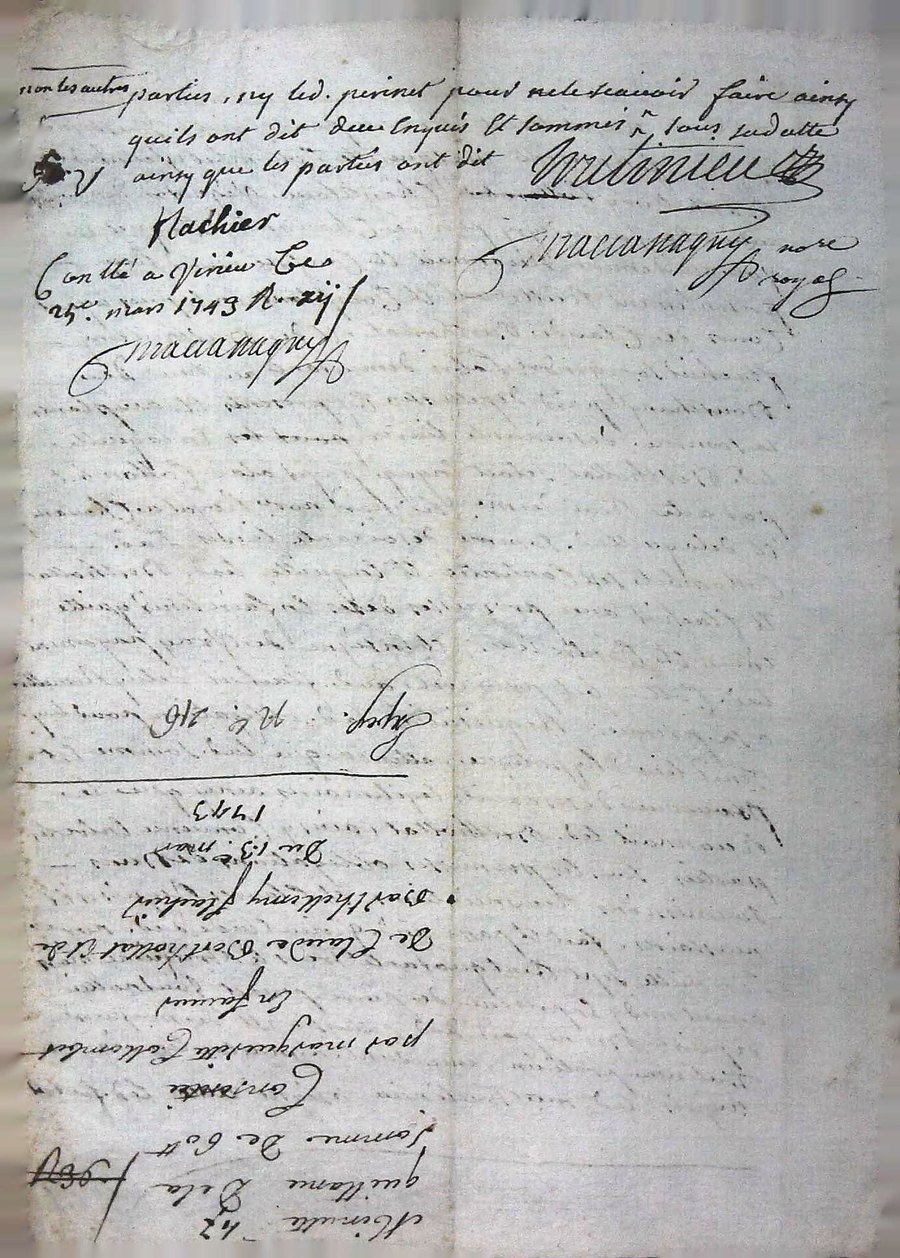 non les autres
parties, ny led. perinet pour ne le scavoir faire ainsy
quils ont dit de ce Enquis Et sommés sous
ainsy que les parties ont dit
flachier
Conllé a Virieu Le
25e. mars 1743 R. xij s
Maccanagny
Maccanagny nore
royal
Minutte 47
quittance De la
somme De 60tt
Consentie
par margueritte Collombet
En faveur
De Claude Berthollat Et de
Barthellemy flachier
Du 13. mars
1743
Expeg. No. 216